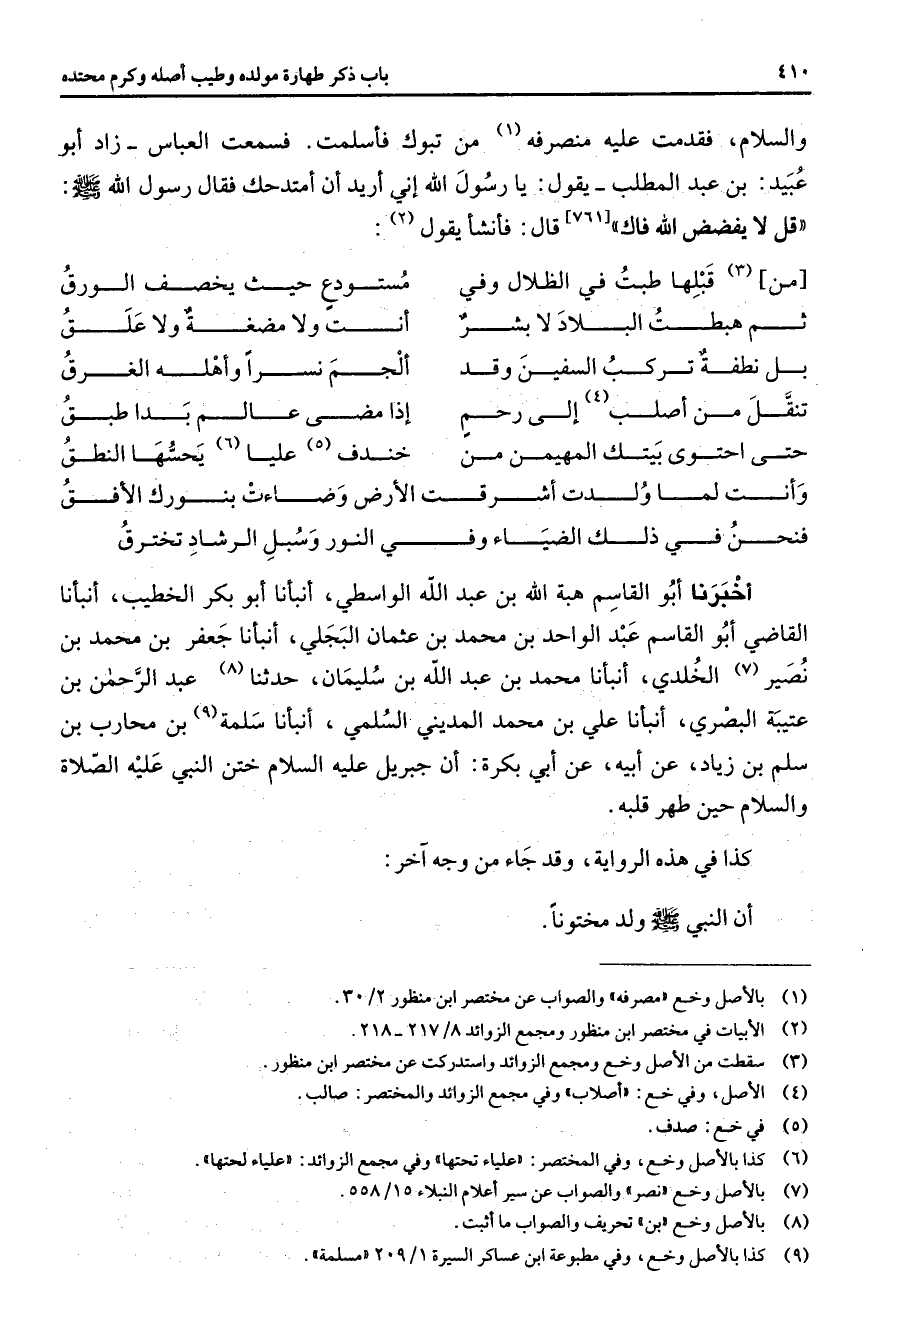 ٤١٠ باب ذكر طهارة مولده وطيب أصله وكرم محتده
والسلام، فقدمت عليه منصرفه (١) من تبوك فأسلمت. فسمعت العباس ـ زاد أبو
عُبَيد: بن عبد المطلب ـ يقول: يا رسُولَ الله إني أريد أن أمتدحك فقال رسول الله ﷺ:
«قل لا يفضض الله فاك»[٧٦١] قال: فأنشأ يقول (٢) :
[من] (٣) قَبْلِها طبتُ في الظلال وفي مُستودعٍ حيث يخصف الورقُ
ثم هبطتُ البلادَ لا بشرٌ أنت ولا مضغةٌ ولا عَلَقُ
بل نطفةٌ تركبُ السفينَ وقد ألْجمَ نسراً وأهله الغرقُ
تنقَّلَ من أصلب(٤) إلى رحمٍ إذا مضى عالم بَدا طبقُ
حتى احتوى بَيتك المهيمن من خندف (٥) عليا (٦) يَحتُهَا النطقُ
وَأنت لما وُلدت أشرقت الأرض وَضاءتْ بنورك الأفقُ
فنحنُ في ذلك الضيَاء وفي النور وَسُبلِ الرشادِ تخترقُ
أخْبَرَنا أبُو القاسِم هبة الله بن عبد اللّه الواسطي، أنبأنا أبو بكر الخطيب، أنبأنا
القاضي أبُو القاسم عَبْد الواحد بن محمد بن عثمان البَجَلي، أنبأنا جَعفر بن محمد بن
نُصَير (٧) الخُلدي، أنبأنا محمد بن عبد اللّه بن سُليمَان، حدثنا (٨) عبد الرَّحمٰن بن
عتيبَة البصْري، أنبأنا علي بن محمد المديني السُلمي، أنبأنا سَلمة(٩) بن محارب بن
سلم بن زياد، عن أبيه، عن أبي بكرة: أن جبريل عليه السلام ختن النبي عَليْه الصّلاة
والسلام حين طهر قلبه.
كذا في هذه الرواية، وقد جَاء من وجه آخر:
أن النبي ﷺ ولد مختوناً.
(١) بالأصل وخع «مصرفه» والصواب عن مختصر ابن منظور ٣٠/٢.
(٢) الأبيات في مختصر ابن منظور ومجمع الزوائد ٢١٧/٨ ـ ٢١٨.
(٣) سقطت من الأصل وخع ومجمع الزوائد واستدركت عن مختصر ابن منظور.
(٤) الأصل، وفي خع: «أصلاب» وفي مجمع الزوائد والمختصر: صالب.
(٥) في خع: صدف.
(٦) كذا بالأصل وخع، وفي المختصر: «علياء تحتها» وفي مجمع الزوائد: «علياء لحتها».
(٧) بالأصل وخع «نصر» والصواب عن سير أعلام النبلاء ٥٥٨/١٥.
(٨) بالأصل وخع «بن» تحريف والصواب ما أثبت.
(٩) كذا بالأصل وخع، وفي مطبوعة ابن عساكر السيرة ٢٠٩/١ «مسلمة».